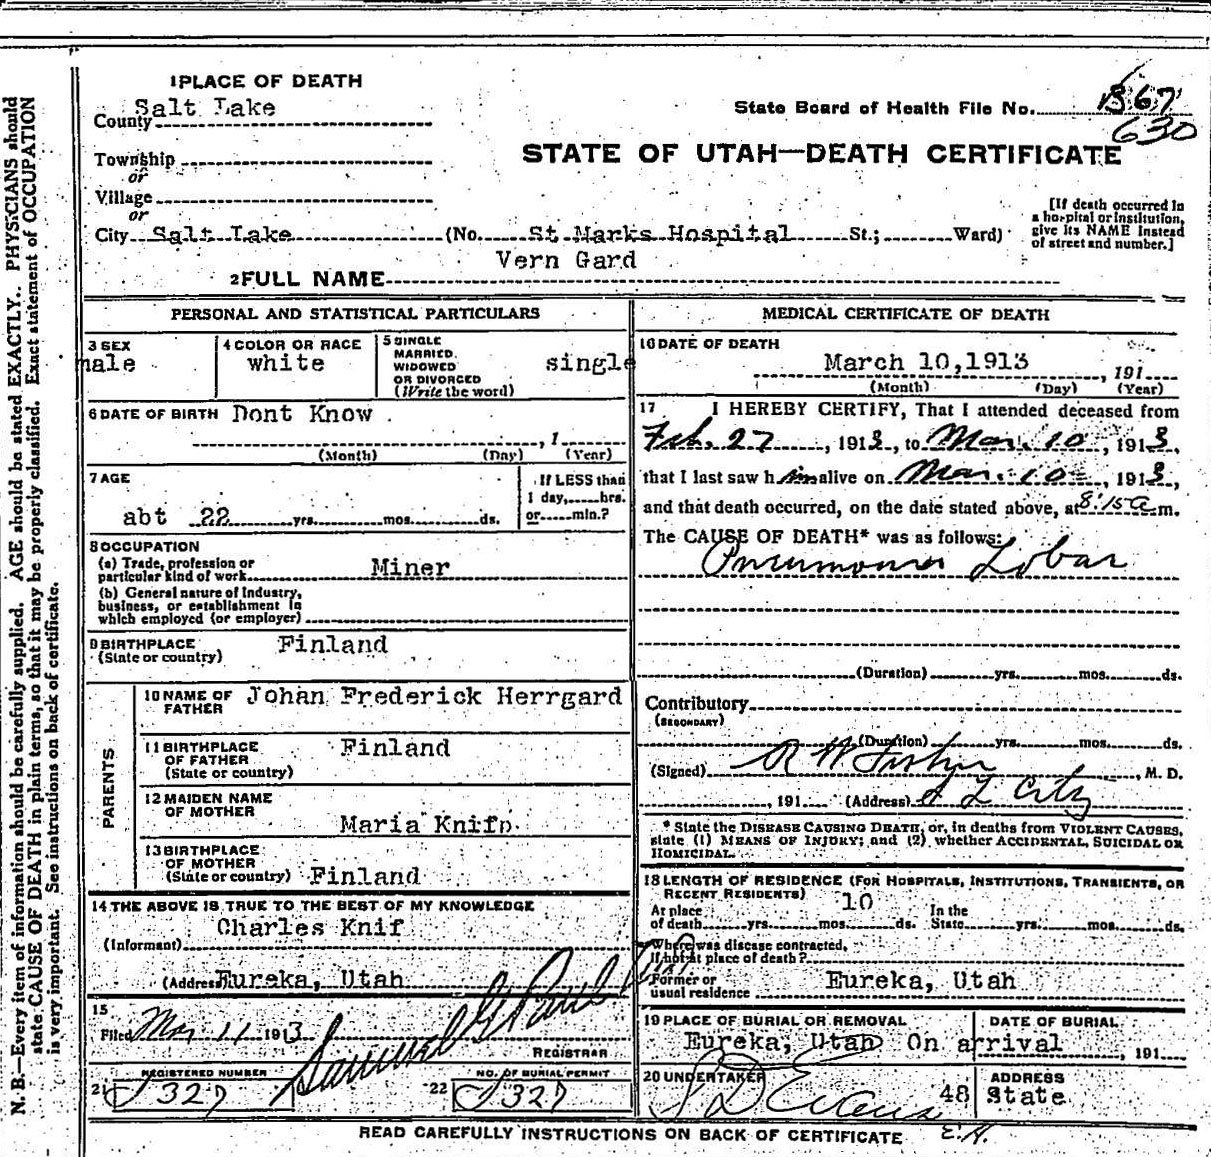 1 PLACE OF DEATH
County Salt Lake
State Board of Health File No. 367
630
Township
or
STATE OF UTAH—DEATH CERTIFICATE
Village
or
City Salt Lake (No. St Marks Hospital St.; Ward)
[If death occurred in a hospital or institution, give its NAME instead of street and number.]
Vern Gard
2 FULL NAME
PERSONAL AND STATISTICAL PARTICULARS
3 SEX
male
4 COLOR OR RACE
white
5 SINGLE
MARRIED.
WIDOWED
OR DIVORCED
(Write the word)
single
6 DATE OF BIRTH Dont Know
, 1
(Month) (Day) (Year)
7 AGE
abt 22 yrs. mos. ds.
If LESS than
1 day, hrs.
or min.?
8 OCCUPATION
(a) Trade, profession or
particular kind of work Miner
(b) General nature of Industry,
business, or establishment in
which employed (or employer)
9 BIRTHPLACE
(State or country) Finland
PARENTS
10 NAME OF
FATHER
Johan Frederick Herrgard
11 BIRTHPLACE
OF FATHER
(State or country)
Finland
12 MAIDEN NAME
OF MOTHER
Maria Knifp
13 BIRTHPLACE
OF MOTHER
(State or country) Finland
14 THE ABOVE IS TRUE TO THE BEST OF MY KNOWLEDGE
(Informant) Charles Knif
(Address) Eureka, Utah
15
Filed Mar 11 1913
Samuel G Paul
REGISTRAR
REGISTERED NUMBER
21 327
NO. OF BURIAL PERMIT
22 327
MEDICAL CERTIFICATE OF DEATH
16 DATE OF DEATH
March 10,1913 , 191
(Month) (Day) (Year)
17 I HEREBY CERTIFY, That I attended deceased from
Feb. 27 , 1913, to Mar. 10 , 1913,
that I last saw him alive on Mar. 10 , 1913,
and that death occurred, on the date stated above, at 8:15 a m.
The CAUSE OF DEATH* was as follows:
Pneumonia Lobar
(Duration) yrs. mos. ds.
Contributory
(SECONDARY)
(Duration) yrs. mos. ds.
(Signed) R W Fisher , M. D.
, 191 (Address) S L City
* State the DISEASE CAUSING DEATH, or, in deaths from VIOLENT CAUSES,
state (1) MEANS OF INJURY; and (2) whether ACCIDENTAL, SUICIDAL OR
HOMICIDAL.
18 LENGTH OF RESIDENCE (FOR HOSPITALS, INSTITUTIONS, TRANSIENTS, OR
RECENT RESIDENTS)
10
At place
of death yrs. mos. ds.
In the
State yrs. mos. ds.
Where was disease contracted,
if not at place of death?
Former or
usual residence Eureka, Utah
19 PLACE OF BURIAL OR REMOVAL
Eureka, Utah
DATE OF BURIAL
On arrival , 191
20 UNDERTAKER
S D Evans
ADDRESS
48 State
READ CAREFULLY INSTRUCTIONS ON BACK OF CERTIFICATE E.H.
N. B.—Every item of information should be carefully supplied. AGE should be stated EXACTLY. PHYSICIANS should
state CAUSE OF DEATH in plain terms, so that it may be properly classified. Exact statement of OCCUPATION
is very important. See instructions on back of certificate.